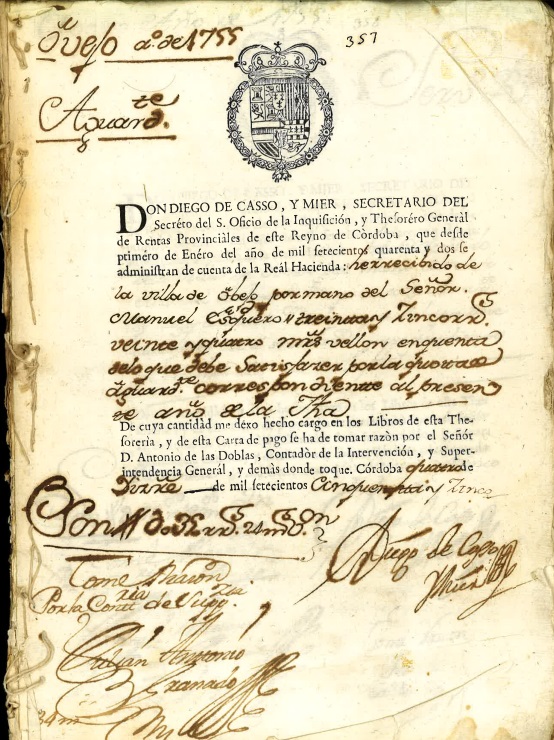 Ovejo a.º de 1755
357
Aguard.te
DON DIEGO DE CASSO, Y MIER, SECRETARIO DEL
Secréto del S. Oficio de la Inquisición, y Thesoréro Generál
de Rentas Provinciáles de este Reyno de Còrdoba, que desde
priméro de Enéro del año de mil setecientos quarenta y dos se
administran de cuenta de la Reál Hacienda: he rrecibido de
la villa de Obejo por mano del Señor.
Manuel Esquero treinta y Zinco rr.s
veinte y quatro mrs vellon en quenta
delo que debe Satisfazer por la quota de
aguard.te correspondiente al presen
te año de la Fha
De cuya cantidád me dexo hecho cargo en los Libros de esta The-
soreria, y de esta Carta de pago se ha de tomar razòn por el Señór
D. Antonio de las Doblas, Contadòr de la Intervención, y Super-
intendencia General, y demàs donde toque. Córdoba quatro de
Dizre de mil setecientos Cinquenta y Zinco
Son 35 rr.s 24 m.s von
Diego de Casso
y Mier
Tome Razon
Por la Cont.ria de
Julian Antonio
Granado
34 m